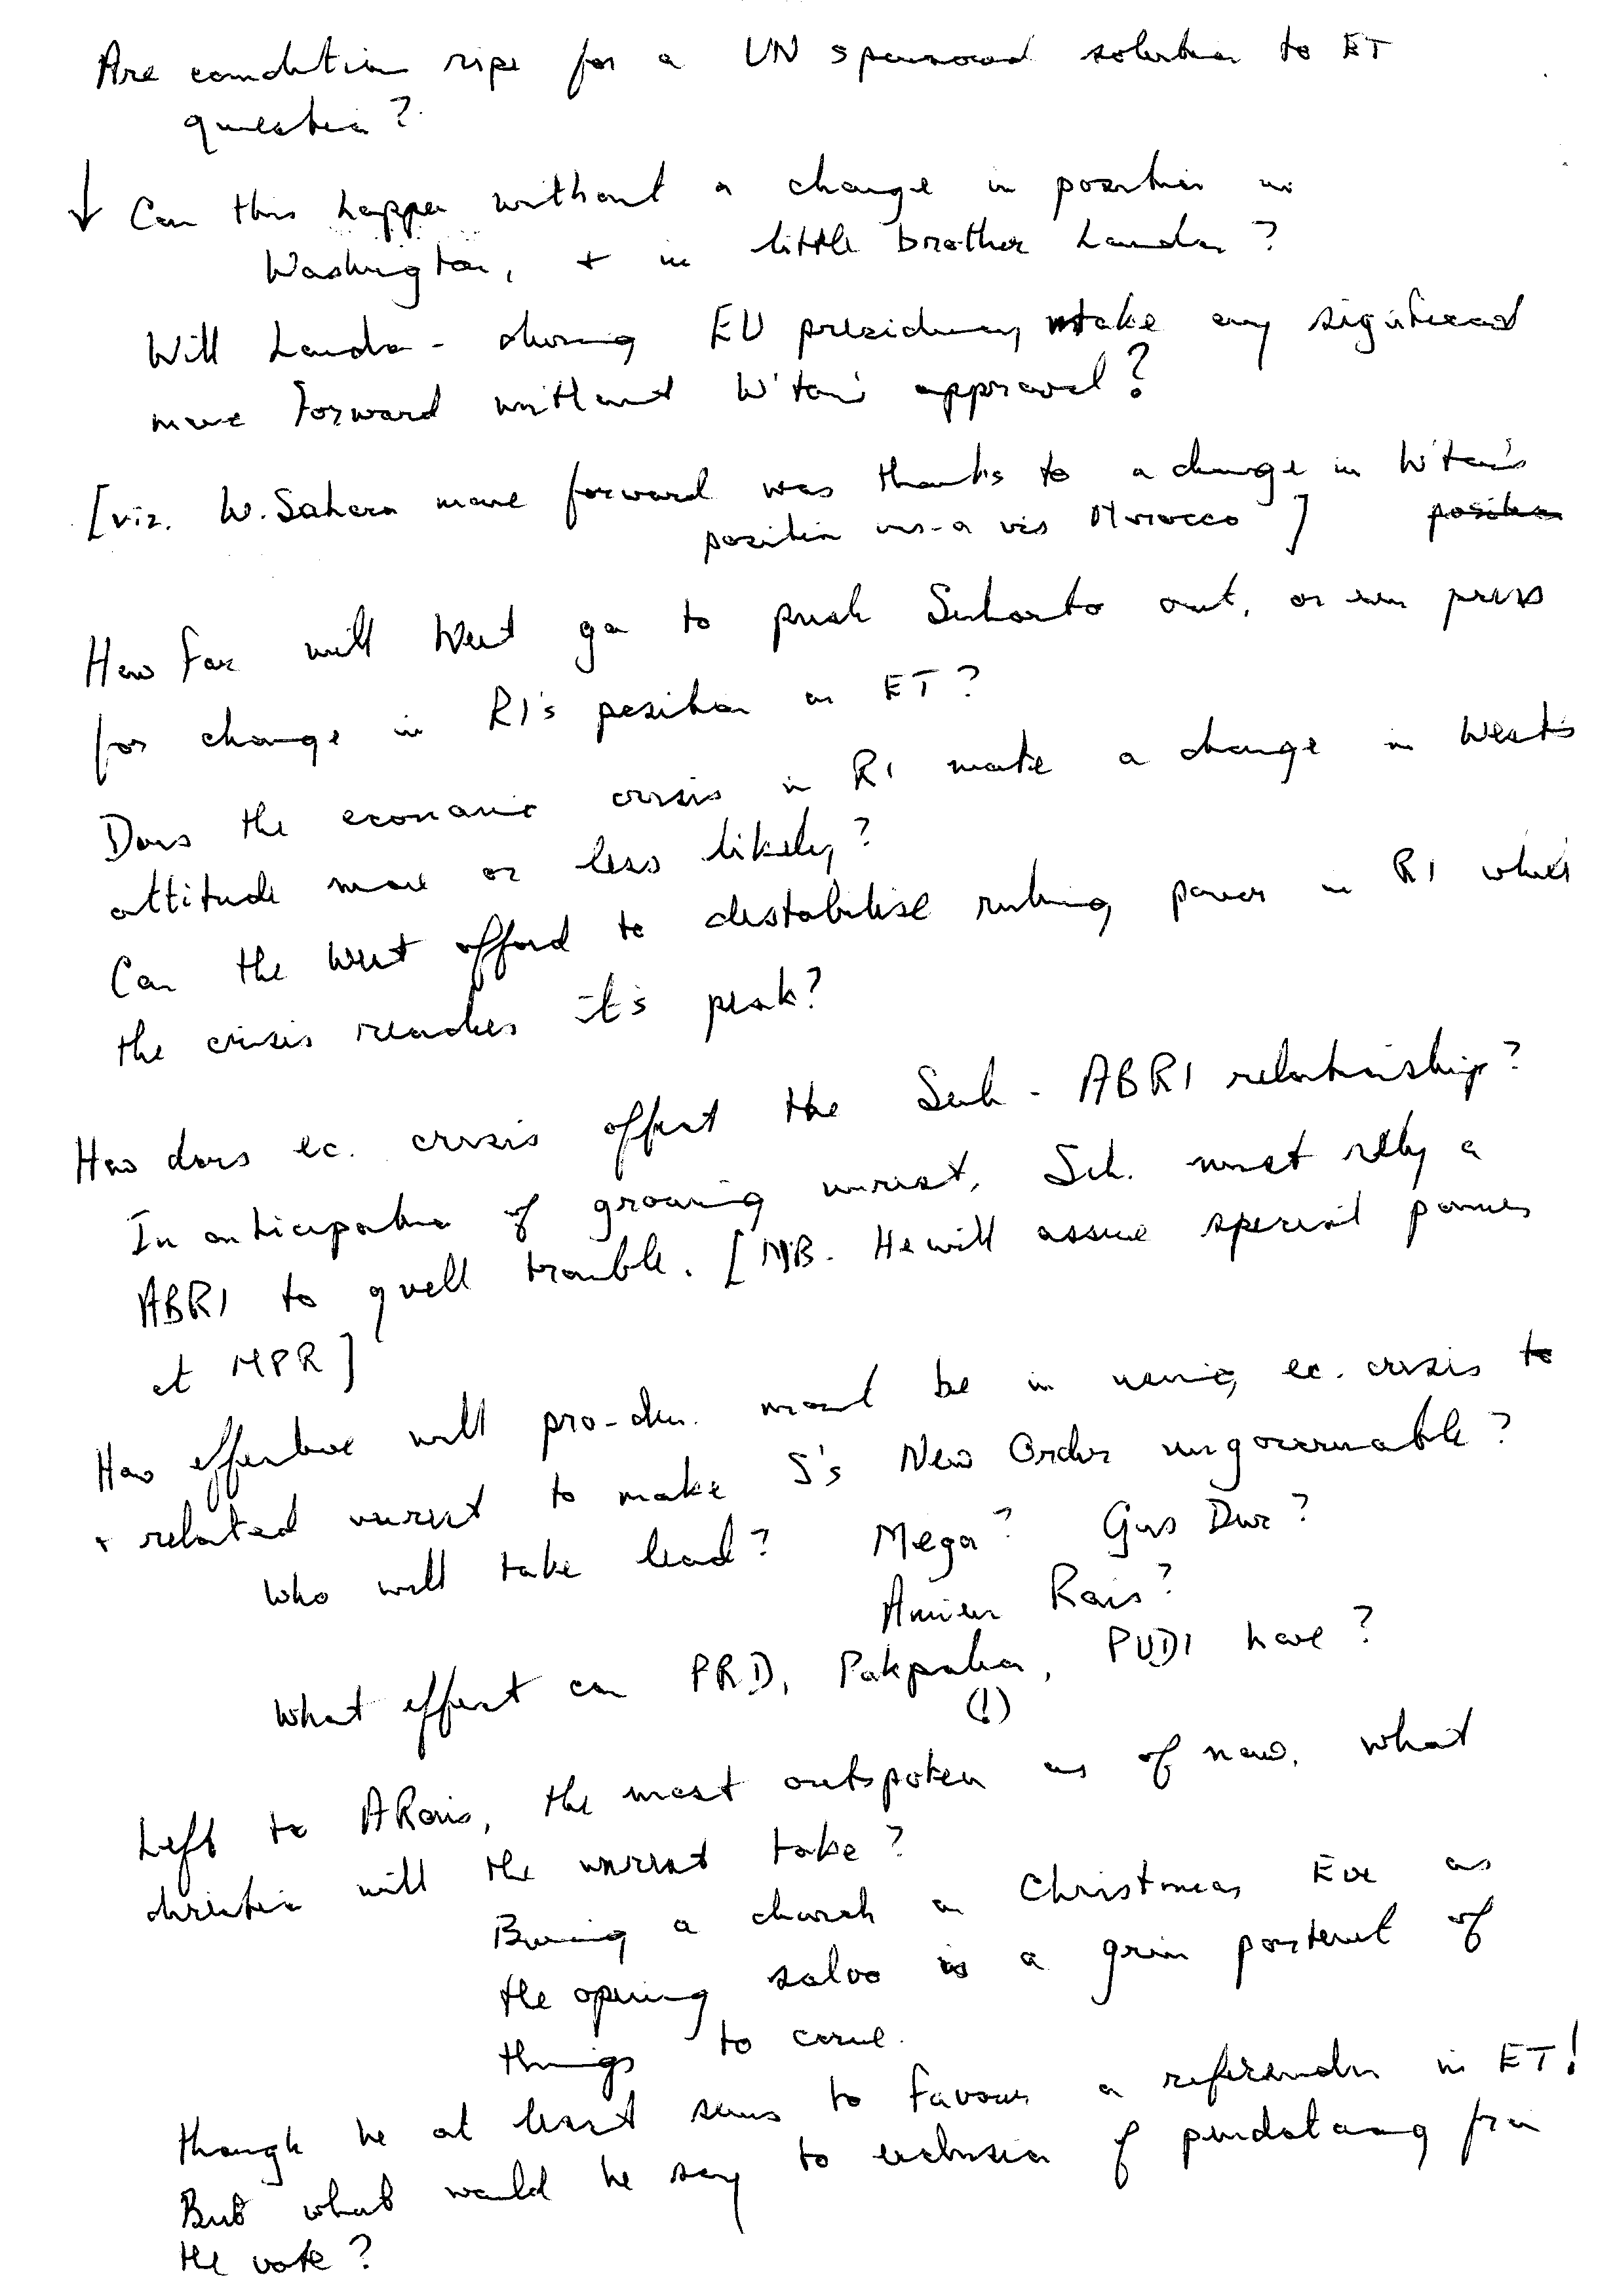 Are condition ripe for a UN sponsored solution to ET
question?
↓ Can this happen without a change in position in
Washington, + in little brother London?
Will London - during EU presidency make any significant
move forward without W'ton's approval?
[viz. W. Sahara move forward was thanks to a change in W'ton's
position vis-a vis Morocco] position
How far will West go to push Suharto out, or even press
for change in RI's position on ET?
Does the economic crisis in RI make a change in West's
attitude more or less likely?
Can the West afford to destabilise ruling power in RI whilst
the crisis reaches it's peak?
How does ec. crisis affect the Suh - ABRI relationship?
In anticipation of growing unrest, Suh. must rely on
ABRI to quell trouble. [NB. He will assume special powers
at MPR]
How effective will pro-dem. movt be in using ec. crisis to
+ related unrest to make S's New Order ungovernable?
Who will take lead? Mega? Gus Dur?
Amien Rais?
What effect can PRD, Pakpahan, PUDI have?
(!)
Left to ARais, the most outspoken as of now, what
direction will the unrest take?
Burning a church on Christmas Eve as
the opening salvo is a grim portent of
things to come.
though he at least seems to favour a referendum in ET!
But what would he say to exclusion of pendatang from
the vote?